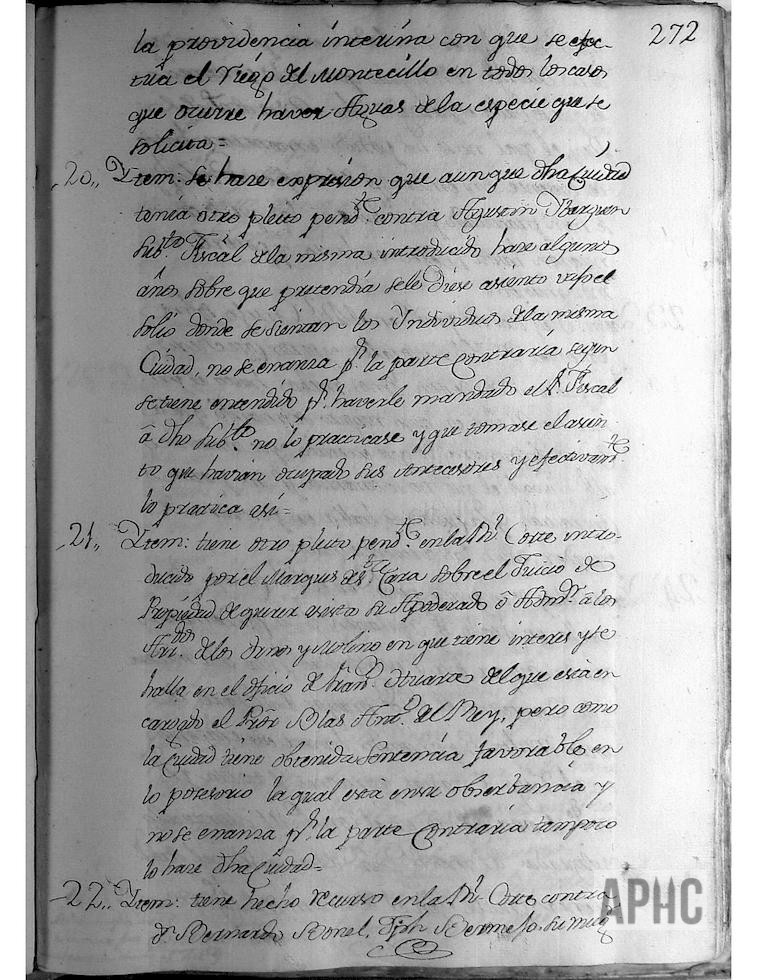 272
la providencia interina con que se efec-
tua el Riego del Montecillo en todos los casos
que ocurre haver Aguas de la especie que se
solicita=
20,, Ytem: se hase expresion que aunque dha Ciudad
tenia otro pleito pend.te contra Agustin Ybarguen
Sub.to Fiscal de la misma introducido hase algunos
años sobre que pretendia se le diese asiento vajo el
solio donde se sientan los Yndividuos de la misma
Ciudad, no se enanza p.r la parte Contraria segun
se tiene entendido p.r haverle mandado el S.r Fiscal
â dho Sub.to no lo practicase y que tomase el asien-
to que havian ocupado sus Antecesores y efectivam.te
lo practica asi=
21,, Ytem: tiene otro pleito pend.te en la R.l Corte intro-
ducido por el Marques de S.ta Cara sobre el Juicio de
Propiedad de querer asista su Apoderado ô Admor. a los
Arr.dos de losOrnos y Molino en que tiene interes y se
halla en el oficio de Fran.co Duarte del que está en
cargado el Pror Blas Ant.o del Rey, pero como
la Ciudad tiene obtenida Sentencia favorable en
lo posesorio la qual està en su obserbancia y
no se enanza p.r la parte Contraria tampoco
lo hase dha Ciudad=
22,, Ytem: tiene hecho recurso en la R.l Corte contra
d.n Bernardo Bonel, Jph Bermejo su
APHC